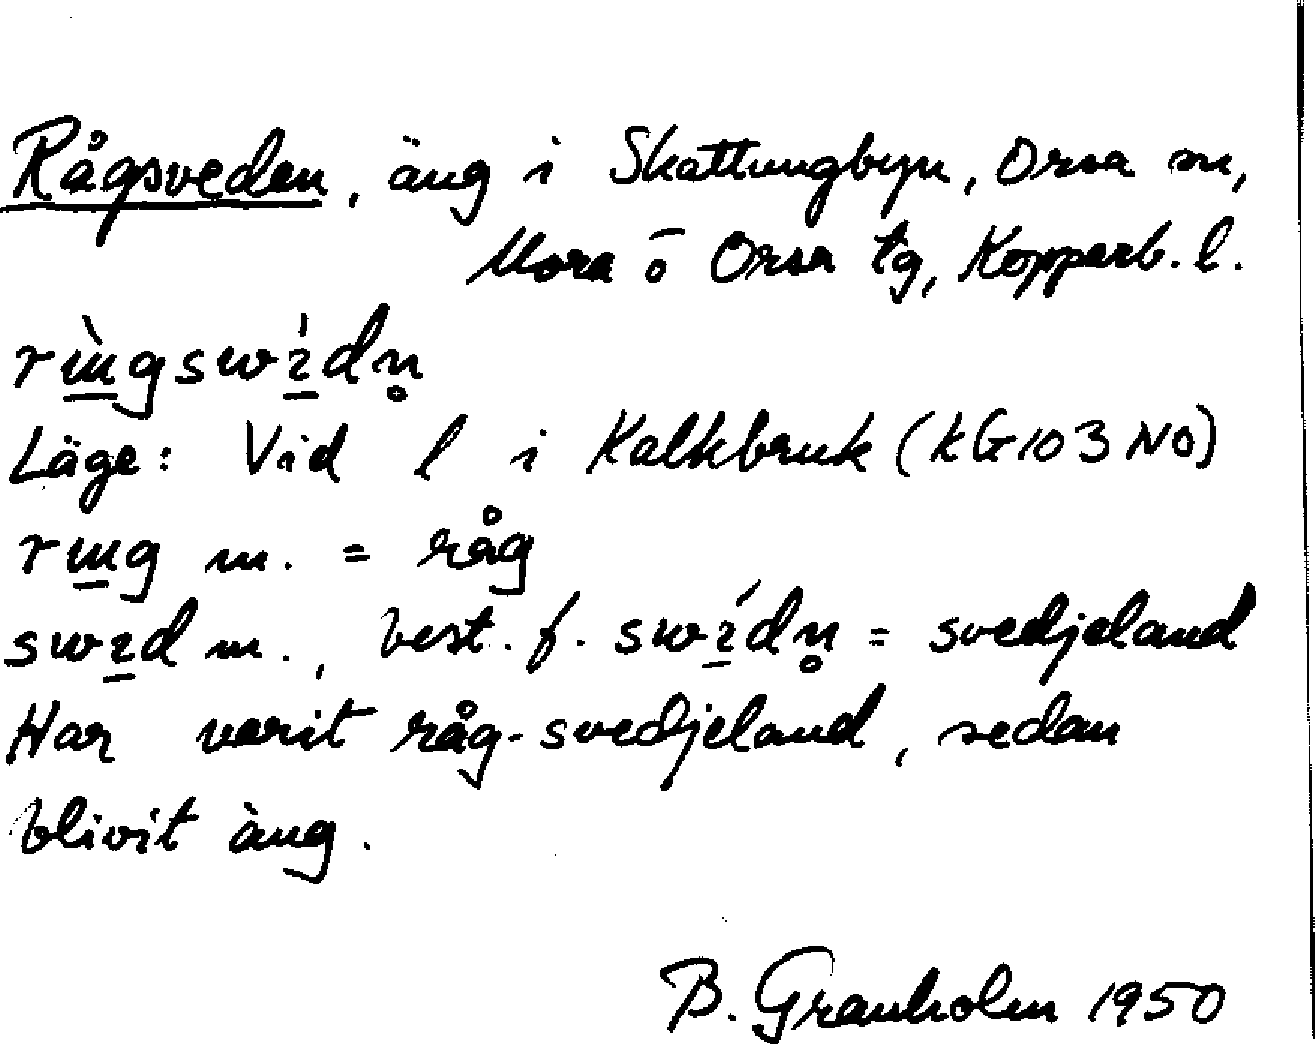 Rågsveden, äng i Skattungbyn, Orsa sn,
Mora o Orsa tg, Kopparb. l.
Läge: Vid l i Kalkbruk (kG103 NO)
m. = råg
m., best. f. = svedjeland
Har varit råg-svedjeland, sedan
blivit äng.
B. Granholm 1950